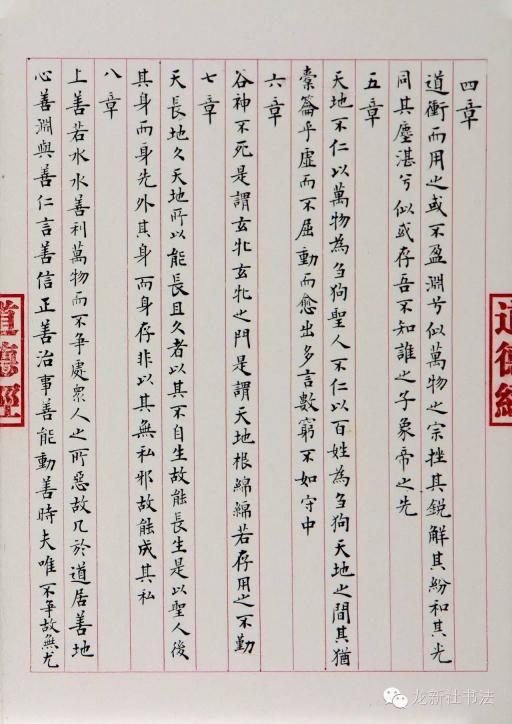 四章
道衝而用之或不盈淵兮似萬物之宗挫其銳解其紛和其光
同其塵湛兮似或存吾不知誰之子象帝之先
五章
天地不仁以萬物為芻狗聖人不仁以百姓為芻狗天地之間其猶
橐籥乎虛而不屈動而愈出多言數窮不如守中
六章
谷神不死是謂玄牝玄牝之門是謂天地根綿綿若存用之不勤
七章
天長地久天地所以能長且久者以其不自生故能長生是以聖人後
其身而身先外其身而身存非以其無私邪故能成其私
八章
上善若水水善利萬物而不爭處眾人之所惡故几於道居善地
心善淵與善仁言善信正善治事善能動善時夫唯不爭故無尤
道德經
道德經
龙新社书法